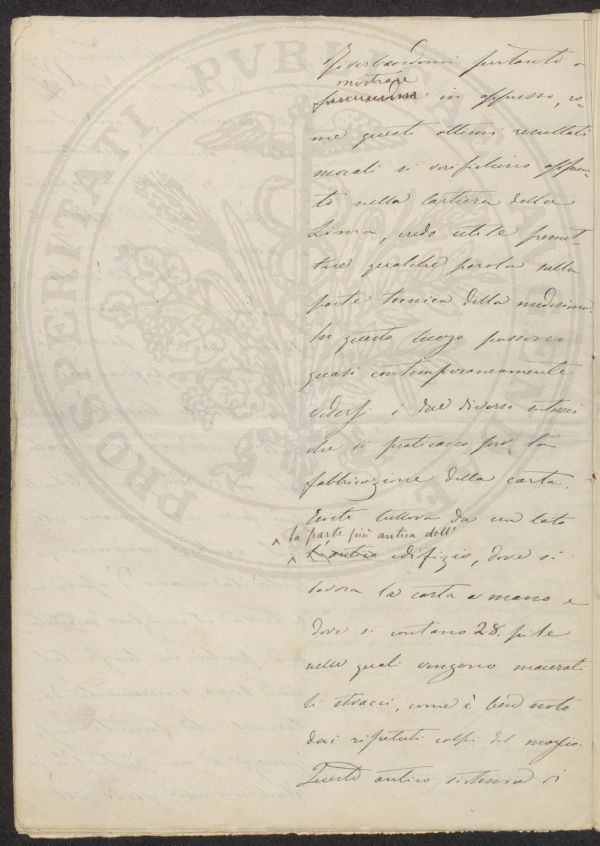 Riserbandomi pertanto a
mostrare
in appresso, co-
me questi ottimi resultati
morali si verifichino appun-
to nella Cartiera della
Lima, credo utile premet-
tere qualche parola sulla
parte tecnica della medesima.
In questo luogo possono
quasi contemporaneamente
vedersi i due diversi sistemi
che si praticano per la
fabbricazione della carta.
Esiste tuttora da un lato
la parte più antica dell'
L'antico edifizio, dove si
lavora la carta a mano e
dove si contano 28. pile
nelle quali vengono macerati
li stracci, come è ben noto
dai ripetuti colpi del maglio.
Questo antico sistema si
PROSPERITATI PVBLICAE